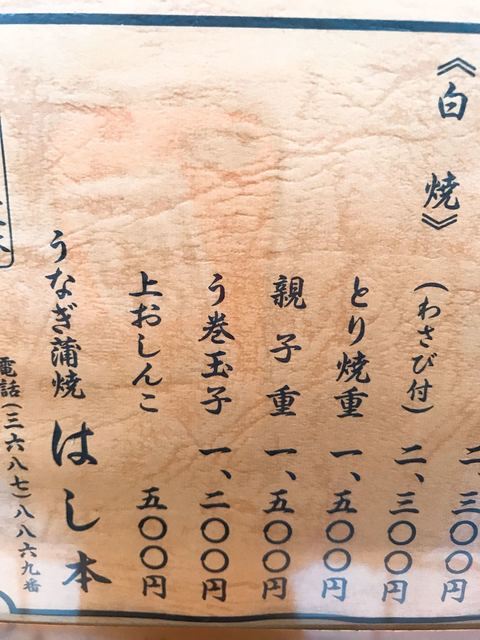 《白焼》
二、三〇〇円
(わさび付) 二、三〇〇円
とり焼重 一、五〇〇円
親子重 一、五〇〇円
う巻玉子 一、二〇〇円
上おしんこ 五〇〇円
うなぎ蒲焼 はし本
電話(三六八七)八八六九番